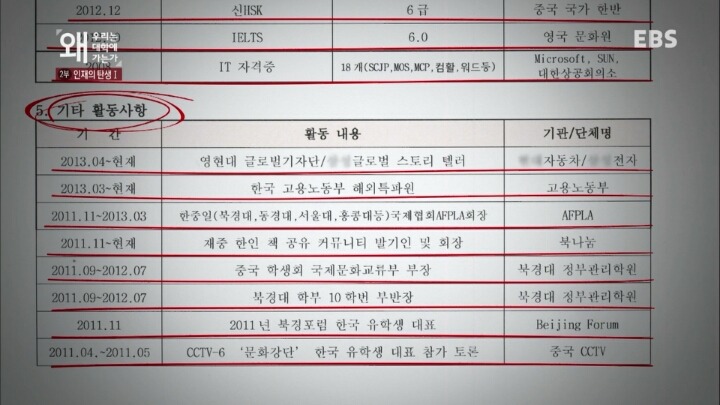 2012.12 신HSK 6급 중국 국가 한반
왜 우리는 대학에 가는가
2부 인재의 탄생 I
EBS
IELTS 6.0 영국 문화원
IT 자격증 18개(SCJP,MOS,MCP,컴활,워드등) Microsoft, SUN, 대한상공회의소
5. 기타 활동사항
기 간 활동 내용 기관/단체명
2013.04~현재 영현대 글로벌기자단/ 글로벌 스토리 텔러 자동차/ 전자
2013.03~현재 한국 고용노동부 해외특파원 고용노동부
2011.11~2013.03 한중일(북경대,동경대,서울대,홍콩대등)국제협회AFPLA회장 AFPLA
2011.11~현재 재중 한인 책 공유 커뮤니티 발기인 및 회장 북나눔
2011.09~2012.07 중국 학생회 국제문화교류부 부장 북경대 정부관리학원
2011.09~2012.07 북경대 학부 10학번 부반장 북경대 정부관리학원
2011.11 2011년 북경포럼 한국 유학생 대표 Beijing Forum
2011.04.~2011.05 CCTV-6 ‘문화강단’ 한국 유학생 대표 참가 토론 중국 CCTV